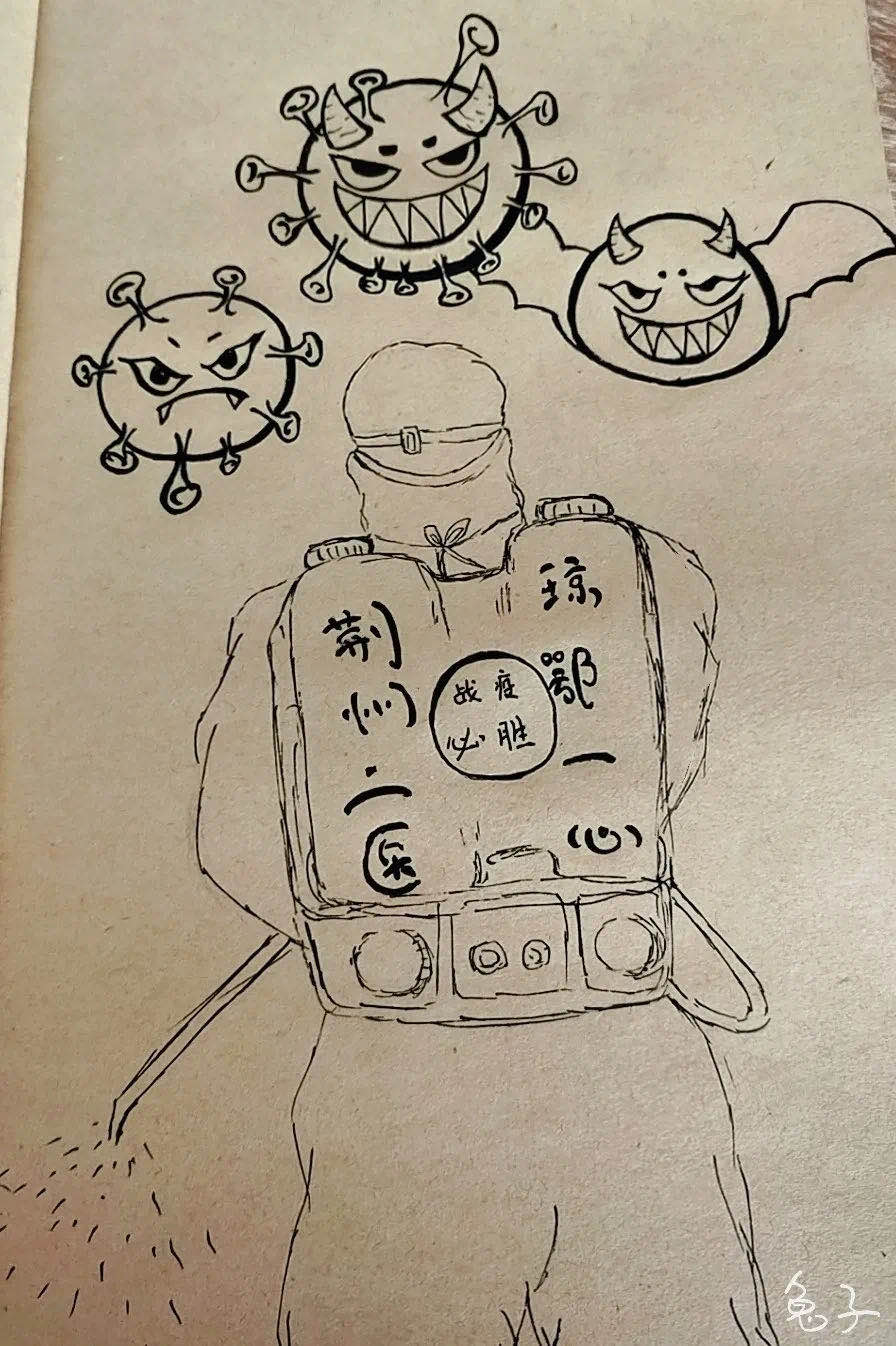 琼鄂一心
荆州
战疫
必胜
兔子